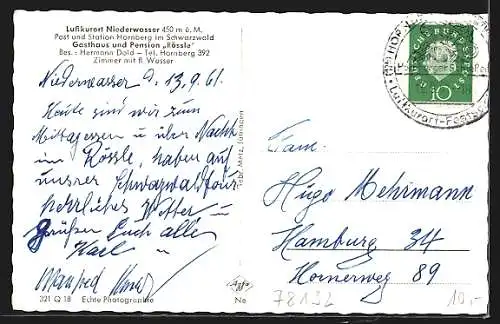 Luftkurort Niederwasser 450 m ü. M.
Post und Station Hornberg im Schwarzwald
Gasthaus und Pension „Rössle"
Bes.: Hermann Dold — Tel. Hornberg 392
Zimmer mit fl. Wasser
Niederwasser d. 13.9.61.
Heute sind wir zum
Mittagessen u über Nacht
im Rössle, haben auf
unsrer Schwarzwaldtour
herrliches Wetter u
Grüßen Euch alle
Karl u
Manfred
321 Q 18 Echte Photographie
Gebr. Metz, Tübingen
Agfa
Ne
DEUTSCHE BUNDESPOST
10
HORNBERG
Luftkurort
Fam.
Hugo Mehrmann
Hamburg 34
Hornerweg 89
78132
10,-